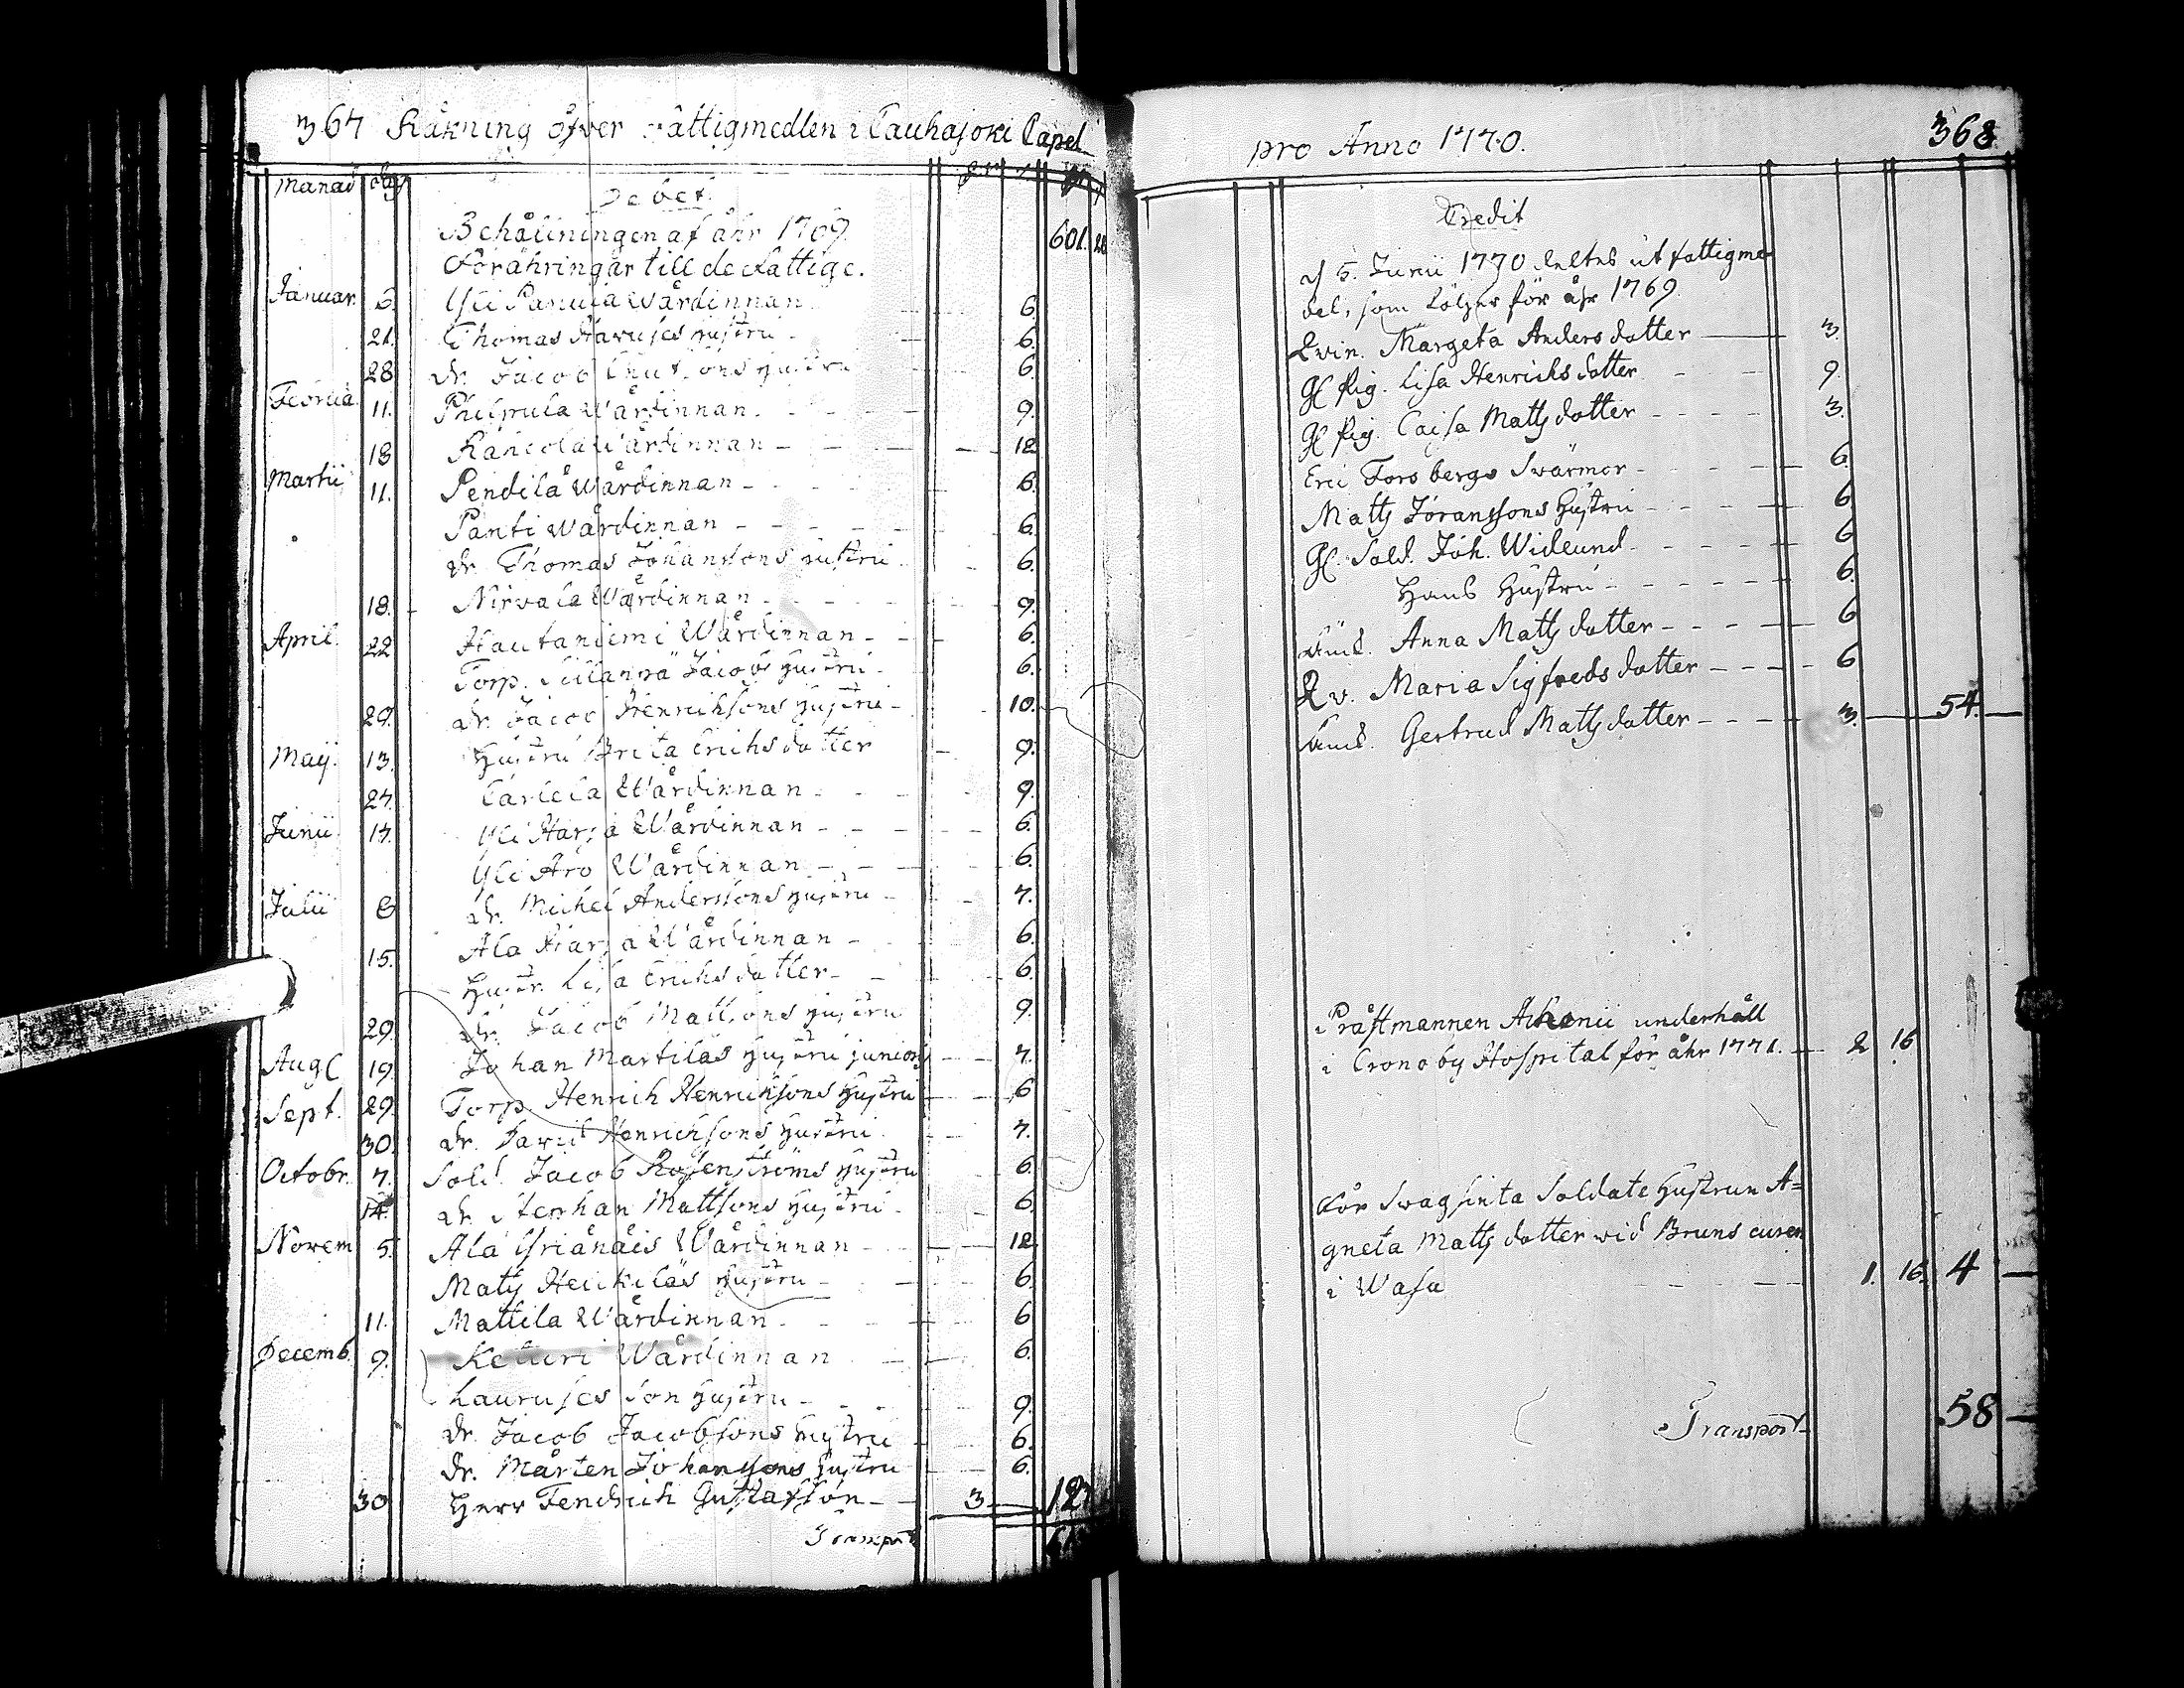 367 Räkning öfver Fattigmedlen i Cauhajoki Capel
Manad dag
Debet.
Behållningen af åhr 1769. 601. 28
Förähringar till de Fattige.
Januar. 6. Yli Panula Wärdinnan 6.
21. Thomas Harujes hustru 6.
28 Dr. Jacob hustru 6.
Februa. 11. Philpula Wärdinnan 9.
18 Wärdinnan 12
Martii 11. Pendilä Wärdinnan 6.
Panti Wärdinnan 6.
Dr. Thomas Johanssons hustru 6.
18. Nirvala Wärdinnan 9.
April. 22 Hautaniemi Wärdinnan 6.
Torp. Jacobs hustru 6.
29. Dr. Jacob Henrichsons hustru 10.
Maij. 13. Hustru Brita Erichsdotter 9.
27. Wärdinnan 9.
Junii 17. Yli Harja Wärdinnan 6.
Yli Aro Wärdinnan 6.
Julii 8 Dr. Michel Anderssons hustru 7.
15. Ala Harja Wärdinnan 6.
Hustr. Lisa Erichsdotter 6.
29. Dr. Jacob Mattsons hustru 9.
Aug 19. Johan Martilas hustru junior 7.
Sept. 29. Torp. Henrich Henrichsons hustru 6
30. Dr. Henrichsons hustru 7.
Octobr. 7. Sold. Jacob Rosenströms hustru 6.
14. Dr. Stephan Mattsons hustru 6.
Novem 5. Ala Wärdinnan 12.
Matts Heickiläs hustru 6.
11. Mattila Wärdinnan 6
Decemb. 9. Keturi Wärdinnan 6.
Laurujes Son hustru 9.
Dr. Jacob Jacobsons hustru 6.
Dr. Mårten Johanssons hustru 6.
30 Herr Fendrich Gustafson 3 12
Transport
pro Anno 1770. 368
Credit
d 5. Junii 1770 deltes ut fattigme-
del, som följer för åhr 1769.
Qvin. Margeta Andersdotter 3.
Gl. Pig. Lisa Henrichsdotter 9.
Gl. Pig. Caisa Mattsdotter 3.
Eric Forsbergs Svärmor 6.
Matts Joranssons Hustru 6.
Gl. Sold. Joh. Widlund 6
Hans Hustru 6.
Anna Mattsdotter 6
Qv. Maria Sigfredsdotter 6
Gertrud Mattsdotter 3. 54.
Prästmannen underhåll
i Cronoby Hospital för åhr 1771. 2 16
För Svagsinta Soldate Hustrun A=
gneta Mattsdotter vid Bruns curen
i Wasa 1. 16. 4
Transport 58